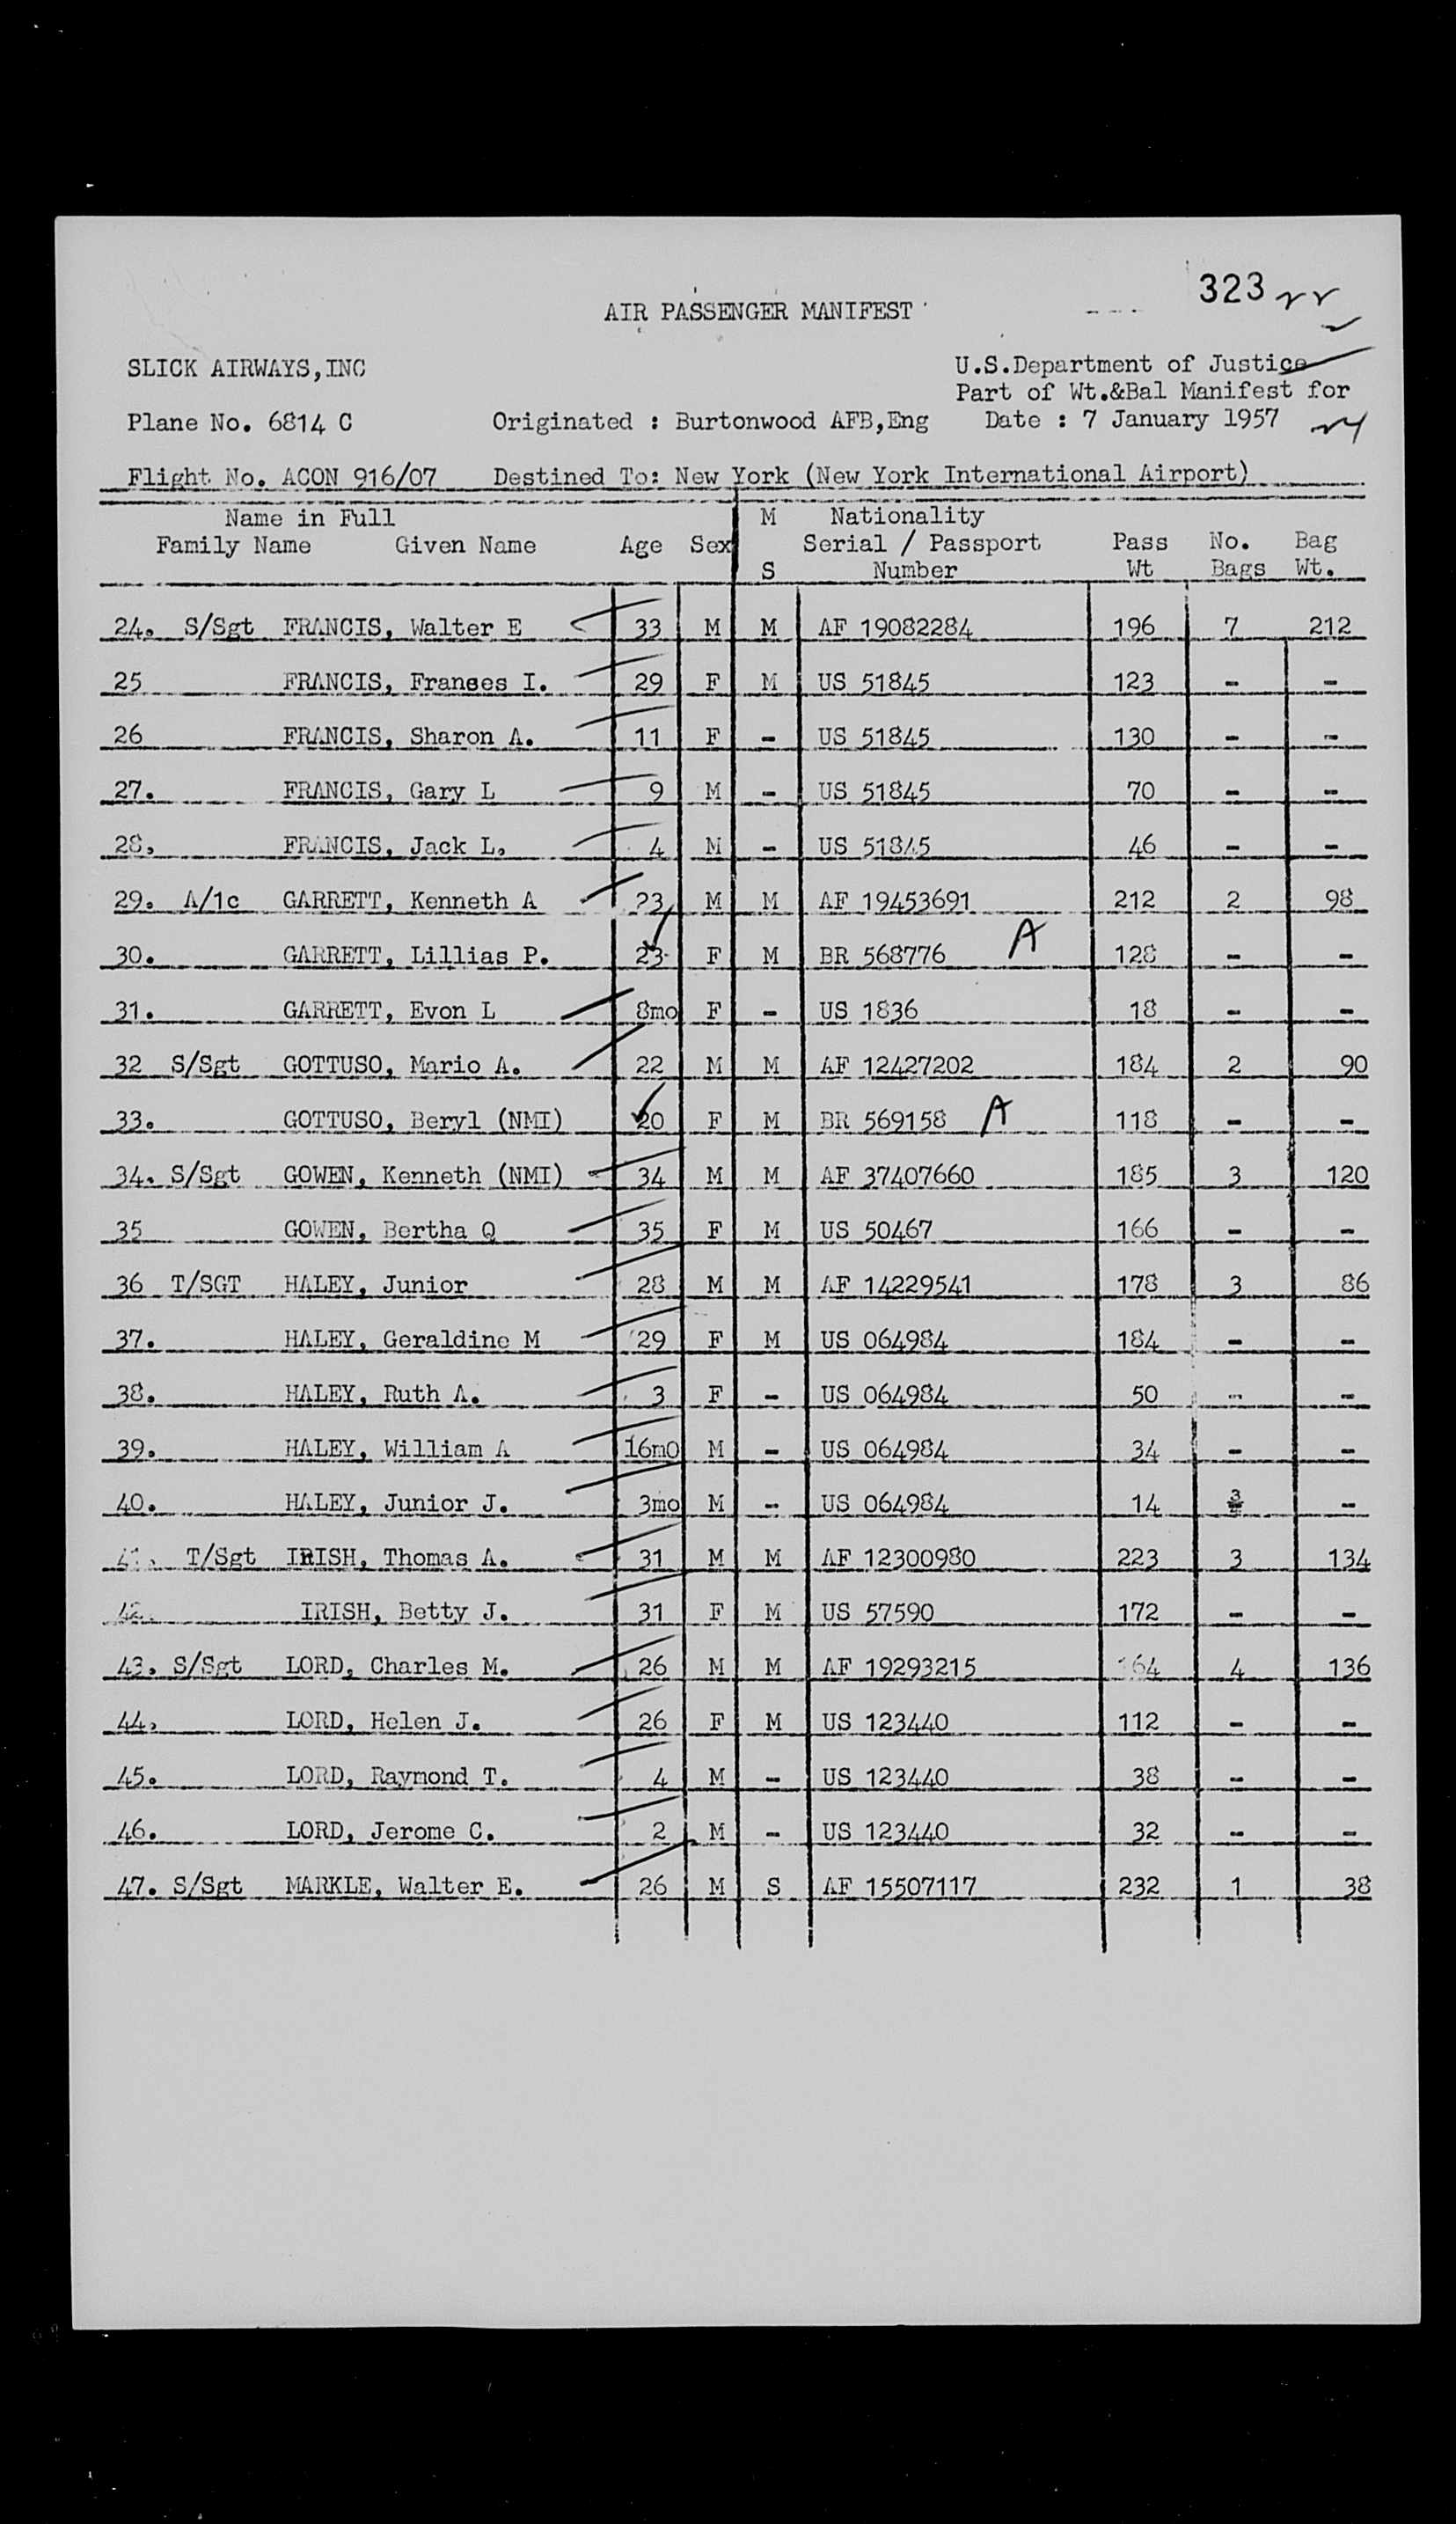 323 rr
AIR PASSENGER MANIFEST
SLICK AIRWAYS,INC
U.S.Department of Justice
Part of Wt.&Bal Manifest for
Plane No. 6814 C Originated : Burtonwood AFB,Eng Date : 7 January 1957
Flight No. ACON 916/07 Destined To: New York (New York International Airport)
Name in Full M Nationality
Family Name Given Name Age Sex Serial / Passport Pass No. Bag
S Number Wt Bags Wt.
24. S/Sgt FRANCIS, Walter E 33 M M AF 19082284 196 7 212
25 FRANCIS, Franses I. 29 F M US 51845 123 - -
26 FRANCIS, Sharon A. 11 F - US 51845 130 - -
27. FRANCIS, Gary L 9 M - US 51845 70 - -
28. FRANCIS, Jack L. 4 M - US 51845 46 - -
29. A/1c GARRETT, Kenneth A 23 M M AF 19453691 212 2 98
30. GARRETT, Lillias P. 23 F M BR 568776 A 128 - -
31. GARRETT, Evon L 8mo F - US 1836 18 - -
32 S/Sgt GOTTUSO, Mario A. 22 M M AF 12427202 184 2 90
33. GOTTUSO, Beryl (NMI) 20 F M BR 569158 A 118 - -
34. S/Sgt GOWEN, Kenneth (NMI) 34 M M AF 37407660 185 3 120
35 GOWEN, Bertha Q 35 F M US 50467 166 - -
36 T/SGT HALEY, Junior 28 M M AF 14229541 178 3 86
37. HALEY, Geraldine M 29 F M US 064984 184 - -
38. HALEY, Ruth A. 3 F - US 064984 50 - -
39. HALEY, William A 16mo M - US 064984 34 - -
40. HALEY, Junior J. 3mo M - US 064984 14 -
41. T/Sgt IRISH, Thomas A. 31 M M AF 12300980 223 3 134
42. IRISH, Betty J. 31 F M US 57590 172 - -
43. S/Sgt LORD, Charles M. 26 M M AF 19293215 164 4 136
44. LORD, Helen J. 26 F M US 123440 112 - -
45. LORD, Raymond T. 4 M - US 123440 38 - -
46. LORD, Jerome C. 2 M - US 123440 32 - -
47. S/Sgt MARKLE, Walter E. 26 M S AF 15507117 232 1 38